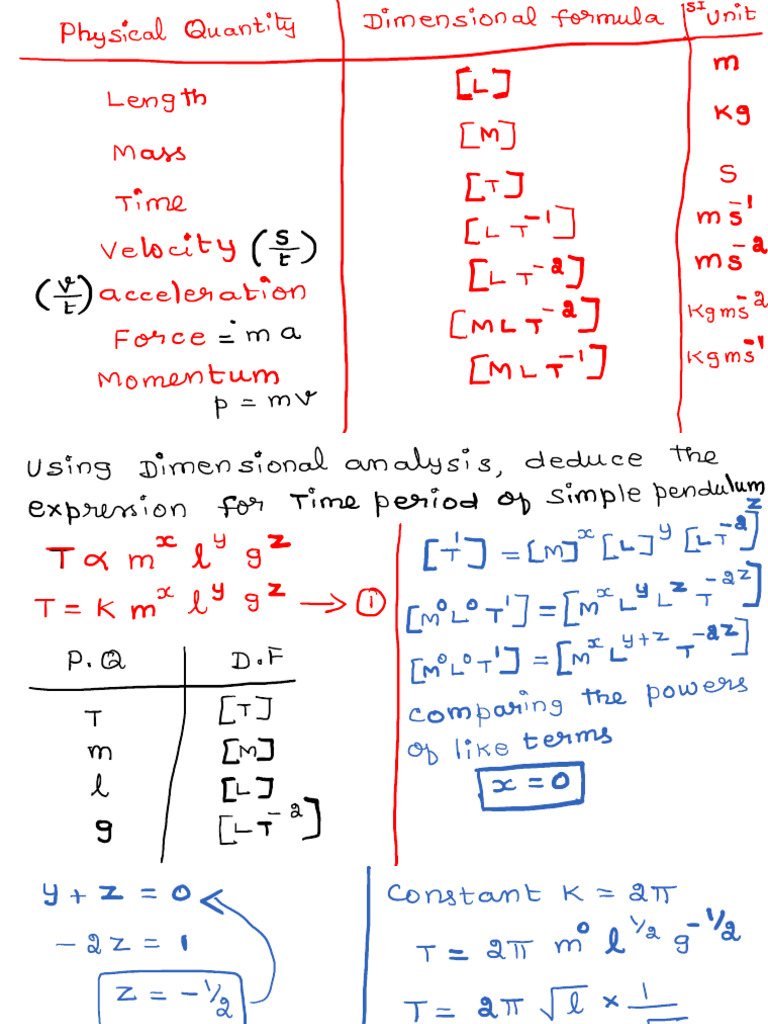 Physical Quantity Dimensional formula SI Unit
Length [L] m
Mass [M] kg
Time [T] S
Velocity (S/t) [L T⁻¹] m s⁻¹
(v/t) acceleration [L T⁻²] m s⁻²
Force = m a [M L T⁻²] kg m s⁻²
Momentum [M L T⁻¹] kg m s⁻¹
p = mv
Using Dimensional analysis, deduce the
expression for Time period of simple pendulum
T ∝ m^x l^y g^z
T = K m^x l^y g^z → ①
P.Q D.F
T [T]
m [M]
l [L]
g [L T⁻²]
[T¹] = [M]^x [L]^y [L T⁻²]^z
[M⁰ L⁰ T¹] = [M^x L^y L^z T^-2z]
[M⁰ L⁰ T¹] = [M^x L^y+z T^-2z]
comparing the powers
of like terms
x = 0
y + z = 0
- 2z = 1
z = -1/2
Constant K = 2π
T = 2π m⁰ l^1/2 g^-1/2
T = 2π √l × 1